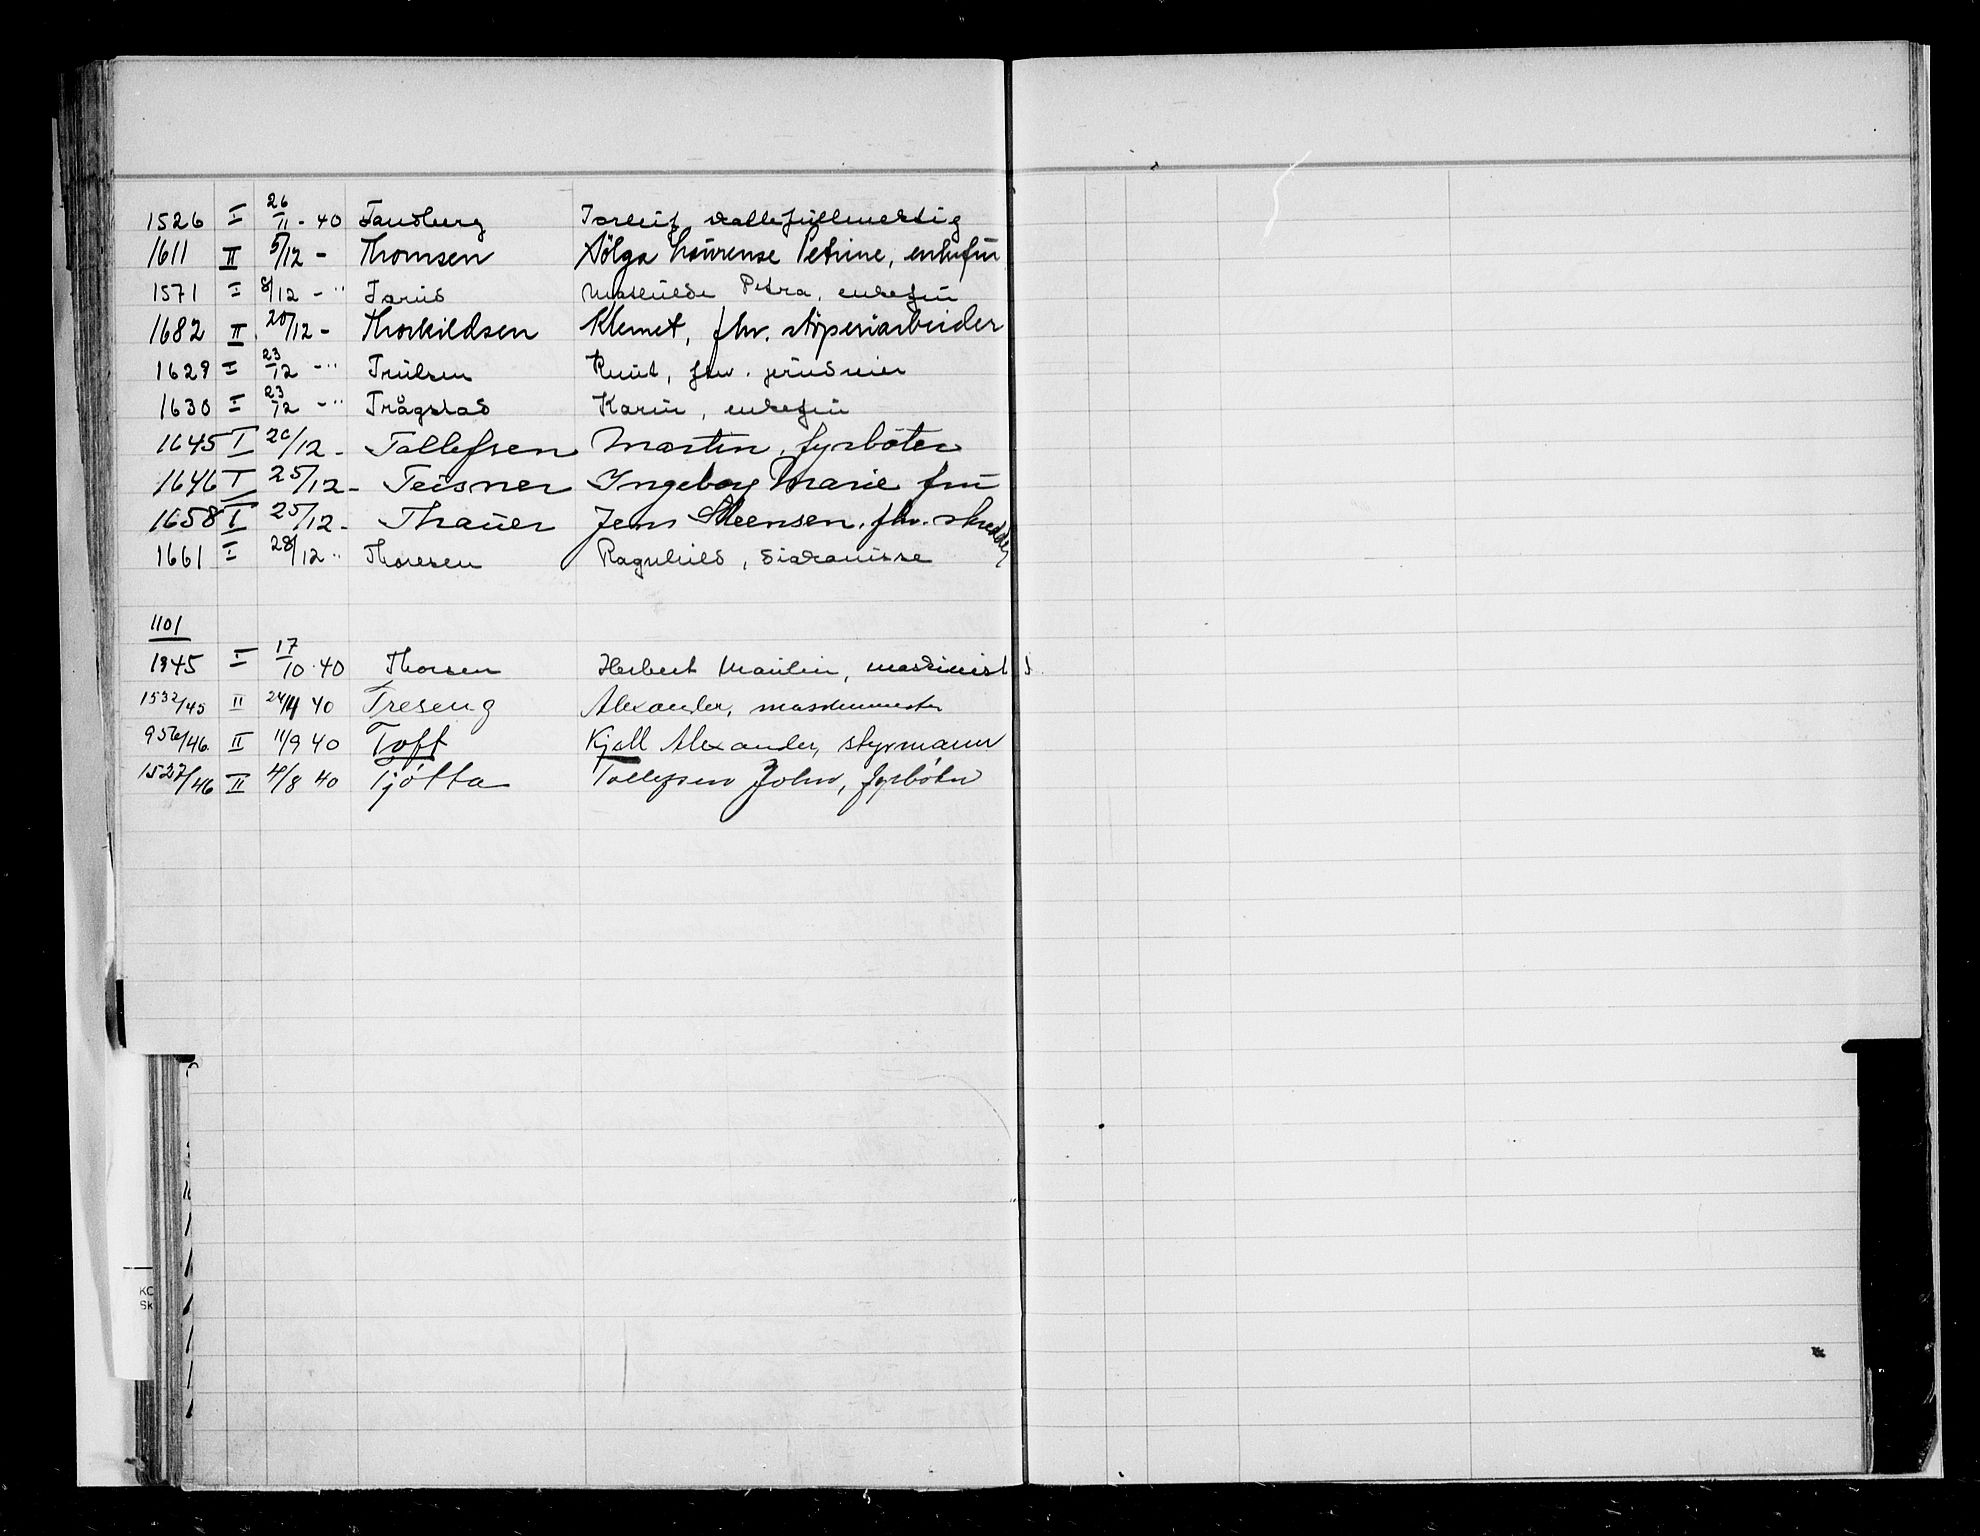 1526 I 26/11 - 40 Sandberg Torleif,
1611 II 5/12 - Thomsen Petrine, enkefru
1571 I 8/12 - " Petra, enkefru
1682 II 20/12 - Thorkildsen Klemet, fhv. støperiarbeider
1629 I 23/12 - " Trulsen Knut, fhv.
1630 I 23/12 - " Trågstad Karin, enkefru
1645 I 20/12 - Tollefsen Martin, fyrbøter
1646 I 25/12 - Teisner Ingeborg Marie fru
1658 I 25/12 - Thauer Jens Steensen, fhv. skredder
1661 I 28/12 " Thoresen Ragnhild, diakonisse
1101
1945 I 17/10 - 40 Thorsen Herbert, maskinist
1532/45 II 24/4 40 Treseng Alexander, maskinmester
956/46 II 11/9 40 Toft Kjell Alexander, styrmann
1527/46 II 4/8 40 Tjøtta Tollefsen John, fyrbøter
KO
Sk